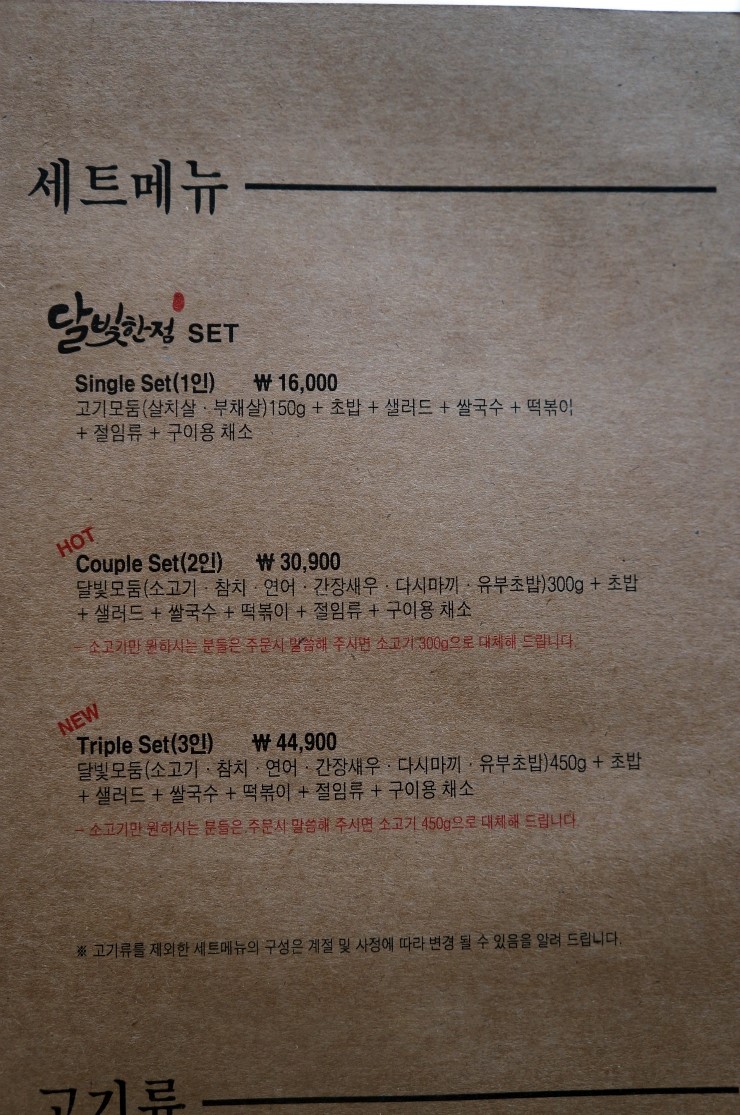 세트메뉴
달빛한점 SET
Single Set(1인) ₩ 16,000
고기모둠(살치살 · 부채살)150g + 초밥 + 샐러드 + 쌀국수 + 떡볶이
+ 절임류 + 구이용 채소
HOT
Couple Set(2인) ₩ 30,900
달빛모둠(소고기 · 참치 · 연어 · 간장새우 · 다시마끼 · 유부초밥)300g + 초밥
+ 샐러드 + 쌀국수 + 떡볶이 + 절임류 + 구이용 채소
- 소고기만 원하시는 분들은 주문시 말씀해 주시면 소고기 300g으로 대체해 드립니다.
NEW
Triple Set(3인) ₩ 44,900
달빛모둠(소고기 · 참치 · 연어 · 간장새우 · 다시마끼 · 유부초밥)450g + 초밥
+ 샐러드 + 쌀국수 + 떡볶이 + 절임류 + 구이용 채소
- 소고기만 원하시는 분들은 주문시 말씀해 주시면 소고기 450g으로 대체해 드립니다.
※ 고기류를 제외한 세트메뉴의 구성은 계절 및 사정에 따라 변경 될 수 있음을 알려 드립니다.
고기류